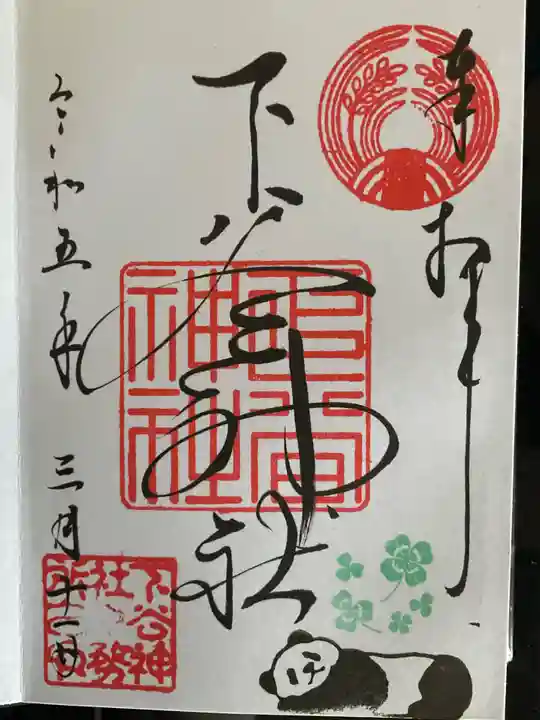 奉拝
下谷神社
下谷神社
令和五年 三月十一日
下谷神社務所